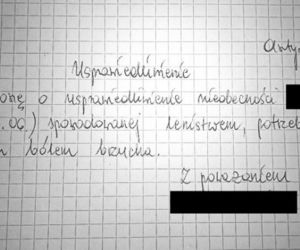 Anty
Usprawiedliwienie
onę o usprawiedliwienie nieobecności
.06) spowodowanej lenistwem, potrzeb
m bólem brzucha.
Z poważaniem